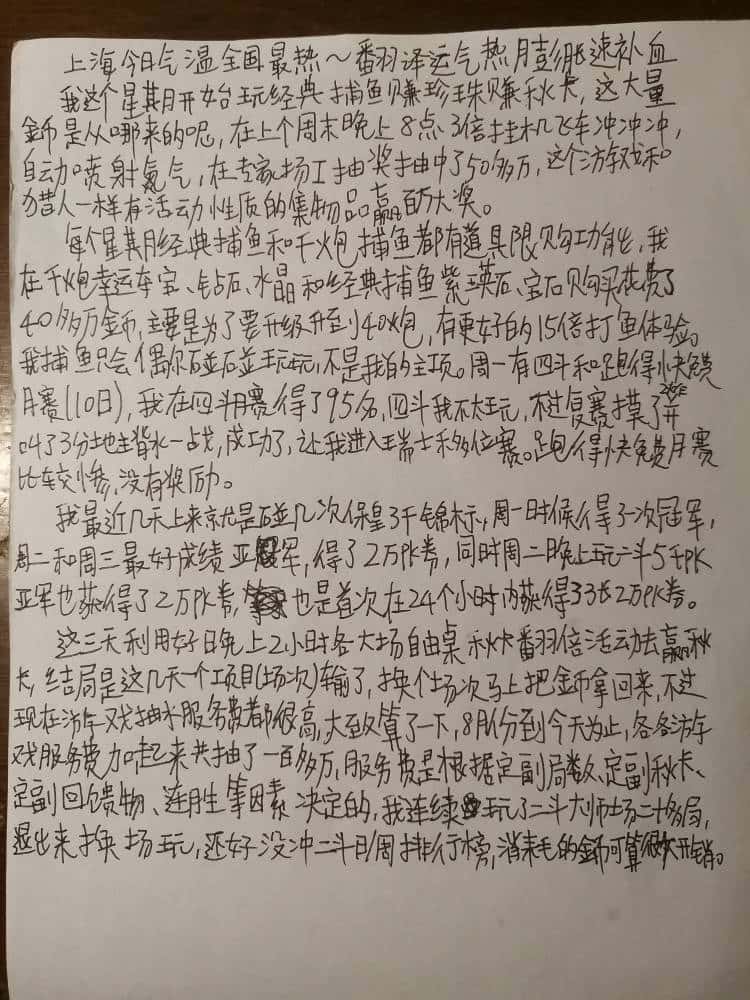 上海今日气温全国最热～翻译运气热月膨胀速补血
我这个星期开始玩经典捕鱼赚珍珠赚秋卡,这大量
金币是从哪来的呢,在上个周末晚上8点3倍挂机飞车冲冲冲,
自动喷射氮气,在专家场工抽奖抽中了50多万,这个游戏和
猎人一样有活动性质的集物品赢百万大奖。
每个星期经典捕鱼和千炮捕鱼都有道具限购功能,我
在千炮幸运车宝、钻石、水晶和经典捕鱼紫瑛石、宝石购买花费了
40多万金币,主要是为了要升级升到40火炮,有更好的15倍打鱼体验。
我捕鱼只会偶尔碰碰玩玩,不是我的主项。周一有四斗和跑得快免费
月赛(10日),我在四斗月赛得了95名,四斗我不太玩,不过复赛摸了开
叫了3分地主背水一战,成功了,让我进入瑞士移位赛。跑得快免费月赛
比较惨,没有奖励。
我最近几天上来就是碰几次保皇3千锦标,周一时候得了一次冠军,
周二和周三最好成绩亚军,得了2万PK券,同时周二晚上玩二斗5千PK
亚军也获得了2万PK券,也是首次在24个小时内获得33长2万PK券。
这三天利用好日晚上2小时各大场自由桌秋卡翻倍活动去赢秋
卡,结局是这几天一个项目(场次)输了,换个场次马上把金币拿回来,不过
现在游戏抽水服务费都很高,大致算了一下,8月份到今天为止,各各游
戏服务费加起来共抽了一百多万,服务费是根据定副局数、定副秋卡、
定副回馈物、连胜等因素决定的,我连续玩了二斗大师场二十多局,
退出来换场玩,还好没冲二斗日/周排行榜,消耗的金币可算很大开销。